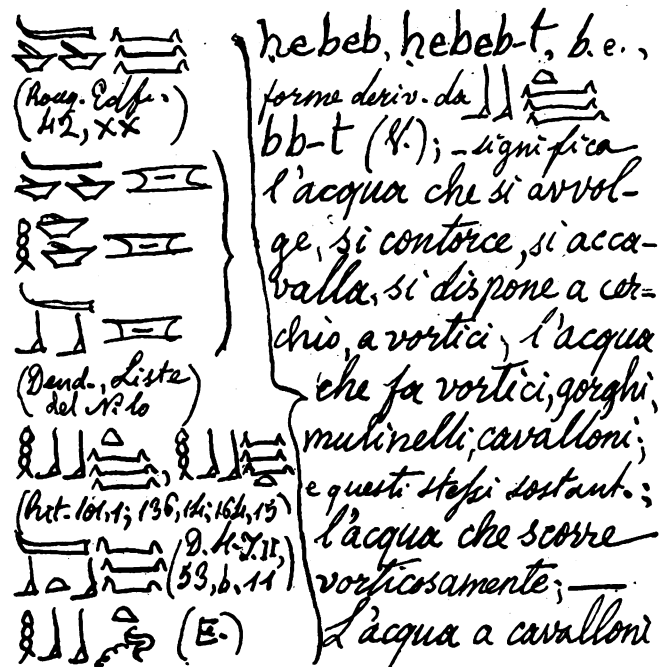 (Roug. Edf.
42, XX)
(Dend., Liste
del N. lo
(Rit. 101,1; 136,14; 164,15)
(D. H-I. II,
53, b. 11)
(E.)
ḥebeb, ḥebeb-t, b. e.,
forme deriv. da
bb-t (V.); - significa
l'acqua che si avvol-
ge, si contorce, si acca-
valla, si dispone a cer-
chio, a vortici; l'acqua
che fa vortici, gorghi,
mulinelli, cavalloni;
e questi stessi sostant.;
l'acqua che scorre
vorticosamente; —
L'acqua a cavalloni